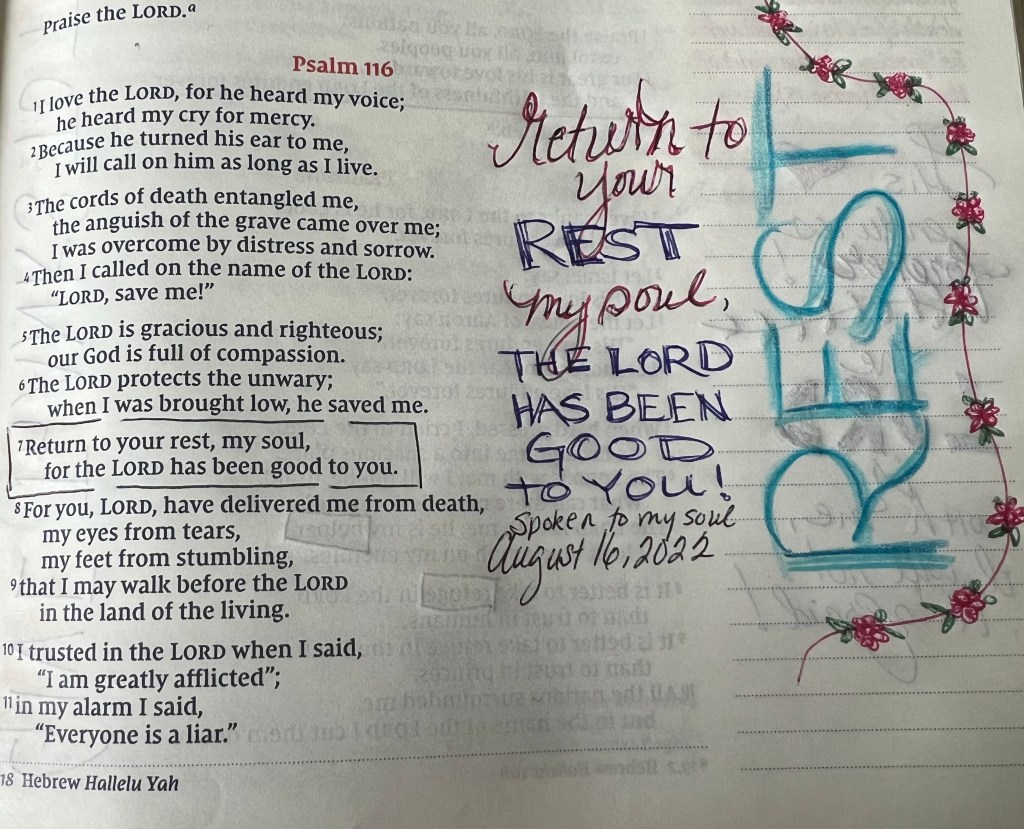 Praise the LORD.a
Psalm 116
1I love the LORD, for he heard my voice;
he heard my cry for mercy.
2Because he turned his ear to me,
I will call on him as long as I live.
3The cords of death entangled me,
the anguish of the grave came over me;
I was overcome by distress and sorrow.
4Then I called on the name of the LORD:
“LORD, save me!”
5The LORD is gracious and righteous;
our God is full of compassion.
6The LORD protects the unwary;
when I was brought low, he saved me.
7Return to your rest, my soul,
for the LORD has been good to you.
8For you, LORD, have delivered me from death,
my eyes from tears,
my feet from stumbling,
9that I may walk before the LORD
in the land of the living.
10I trusted in the LORD when I said,
“I am greatly afflicted”;
11in my alarm I said,
“Everyone is a liar.”
18 Hebrew Hallelu Yah
Return to
your
REST
my soul,
THE LORD
HAS BEEN
GOOD
to YOU!
Spoken to my soul
August 16, 2022
REST